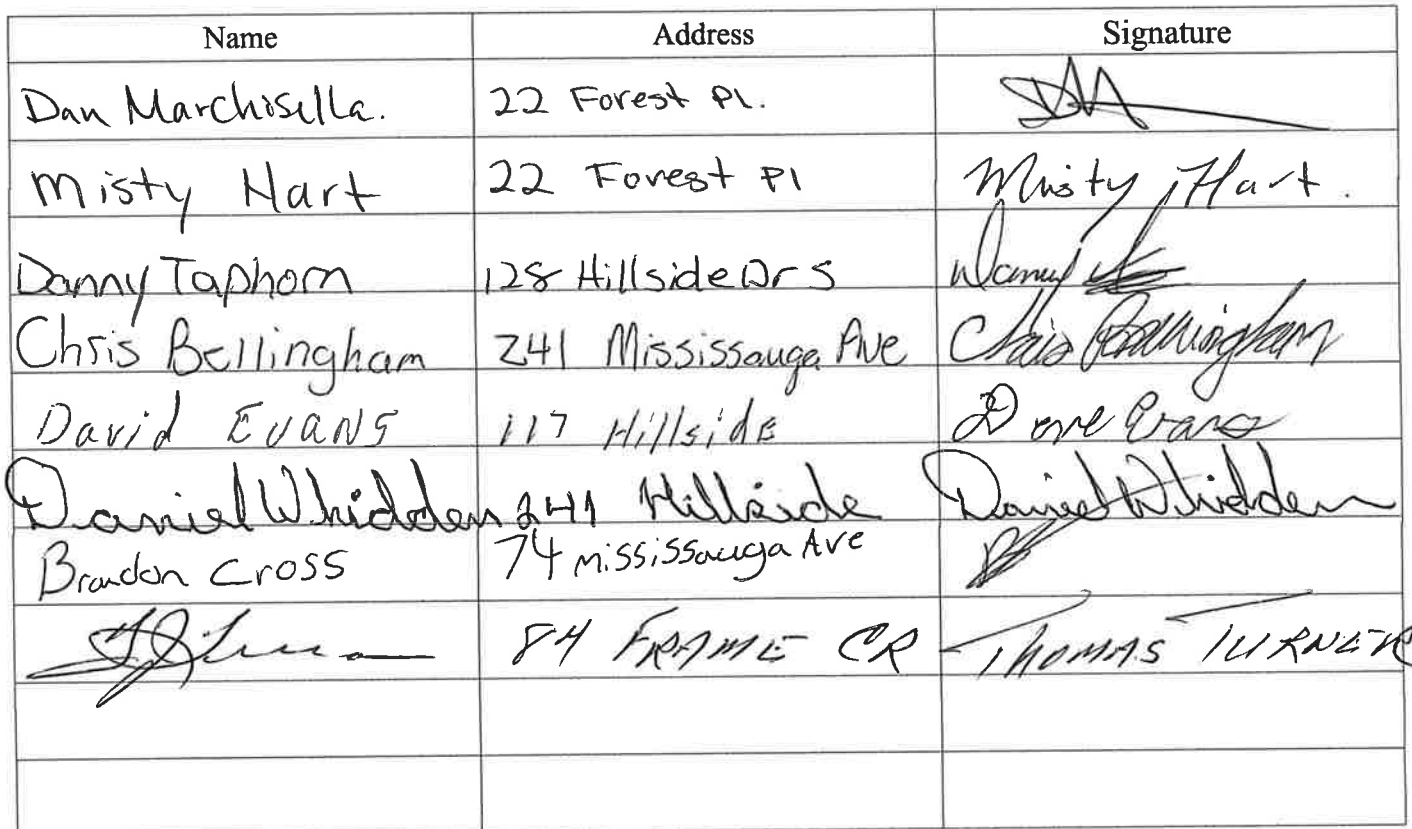 Name Address Signature
Dan Marchisella. 22 Forest Pl.
Misty Hart 22 Forest Pl Misty Hart.
Danny Taphorn 128 Hillside Dr S Danny
Chris Bellingham 241 Mississauga Ave Chris Bellingham
David Evans 117 Hillside Dave Evans
Daniel Whidden 241 Hillside Daniel Whidden
Brandon Cross 74 Mississauga Ave
84 FRAME CR THOMAS TURNER